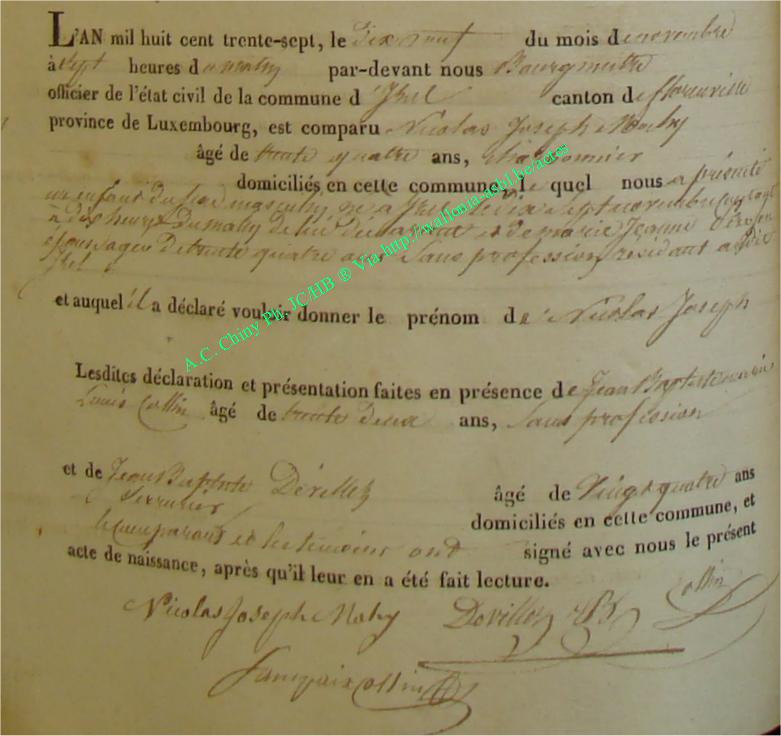 L'AN mil huit cent trente-sept, le dix neuf du mois de novembre
à sept heures du matin par-devant nous Bourgmestre
officier de l'état civil de la commune d'Izel canton de florenville
province de Luxembourg, est comparu Nicolas Joseph Mahy
âgé de trente quatre ans, charbonnier
domiciliés en cette commune le quel nous a présenté
un enfant du sexe masculin né a Izel le dix sept novembre
a dix heures du matin de lui déclarant et de marie Jeanne
épouse agée de trente quatre ans sans profession résidant a dit
Izel
et auquel il a déclaré vouloir donner le prénom de Nicolas Joseph
A.C. Chiny Ph. JC/HB ® Via http://wallonia-asbl.be/actes
Lesdites déclaration et présentation faites en présence de Jean Baptiste
Louis Collin âgé de trente deux ans, sans profession
et de Jean Baptiste Dévillez âgé de vingt quatre ans
Serrurier domiciliés en cette commune, et
le comparant et les témoins ont signé avec nous le présent
acte de naissance, après qu'il leur en a été fait lecture.
Nicolas Joseph Mahy Dévillez Collin
Collin